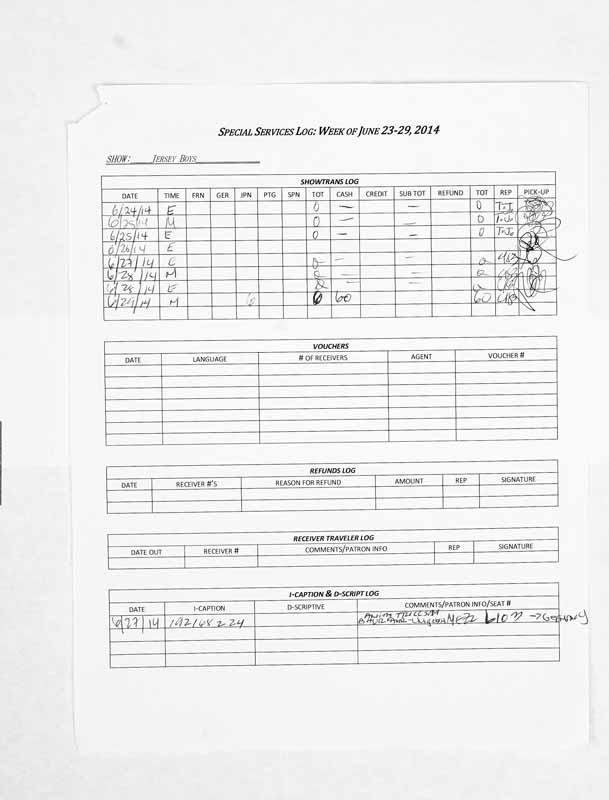 SPECIAL SERVICES LOG: WEEK OF JUNE 23-29, 2014
SHOW: JERSEY BOYS
SHOWTRANS LOG
DATE TIME FRN GER JPN PTG SPN TOT CASH CREDIT SUB TOT REFUND TOT REP PICK-UP
6/24/14 E 0 — — 0
6/25/14 M 0 — — 0
6/25/14 E 0 — — 0
6/26/14 E
6/27/14 E 0 — — 0
6/28/14 M 0 — — 0
6/28/14 E 0 — — 0
6/29/14 M 6 6 60 60
VOUCHERS
DATE LANGUAGE # OF RECEIVERS AGENT VOUCHER #
REFUNDS LOG
DATE RECEIVER #'S REASON FOR REFUND AMOUNT REP SIGNATURE
RECEIVER TRAVELER LOG
DATE OUT RECEIVER # COMMENTS/PATRON INFO REP SIGNATURE
I-CAPTION & D-SCRIPT LOG
DATE I-CAPTION D-SCRIPTIVE COMMENTS/PATRON INFO/SEAT #
6/27/14 192168224 MEZZ